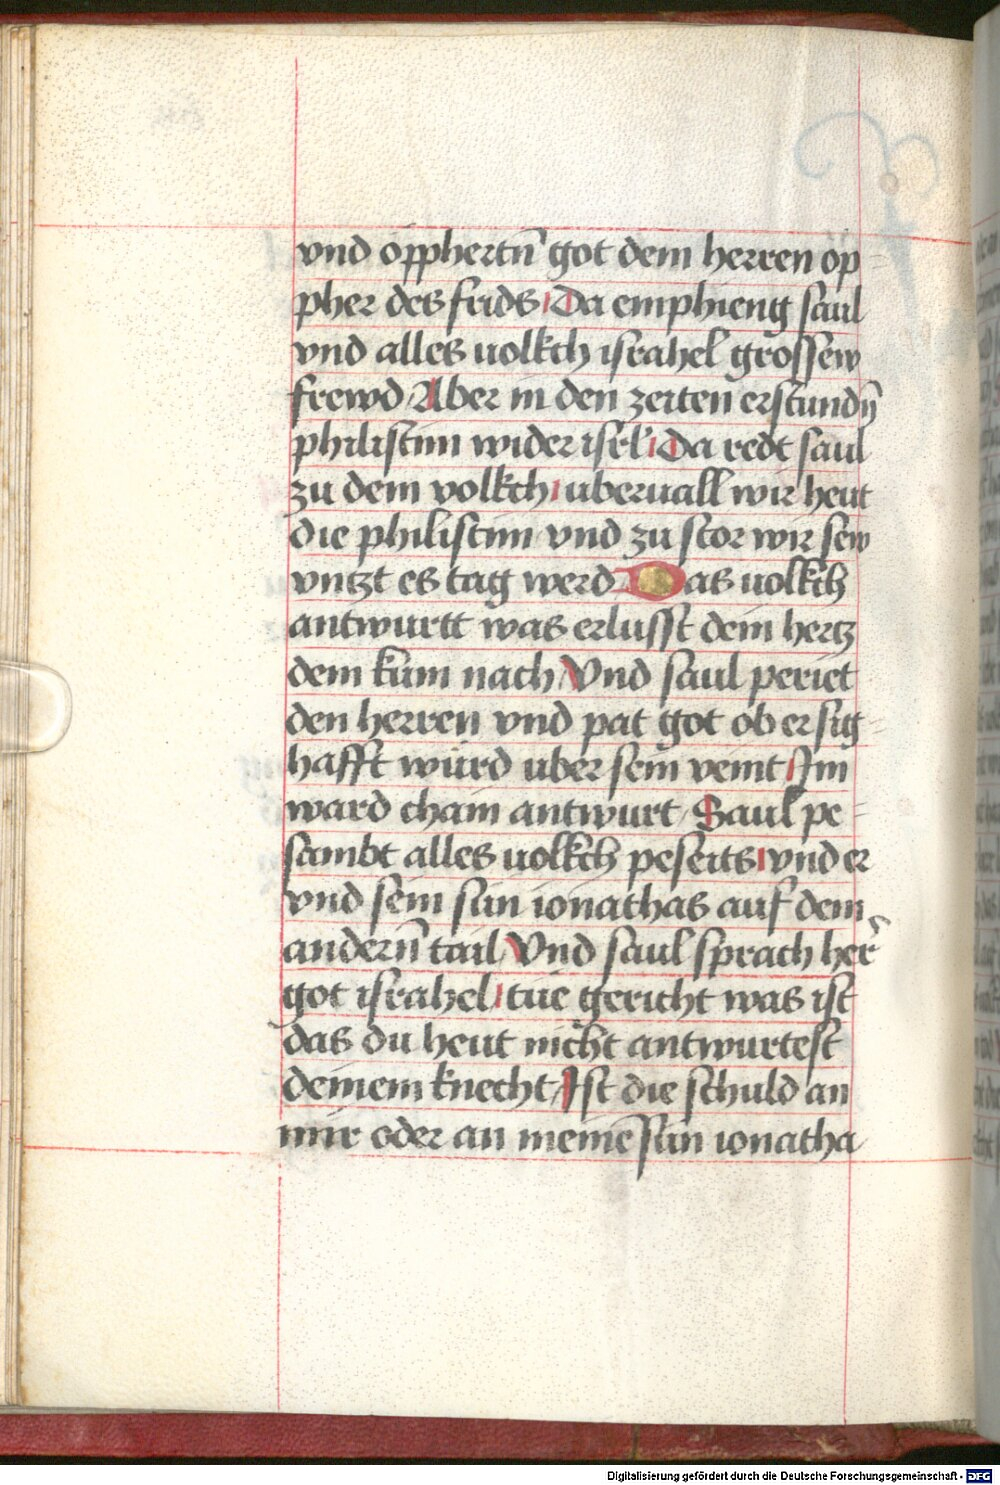 vnd opphertn̄ got dem herren op=
pher des frids Da emphieng saul
vnd alles uolkch israhel grossew
frewd Aber in den zeiten erstundn̄
philistim wider isrl̄ Da redt saul
zu dem volkch uberuall wir heut
die philistim vnd zu stor wir sew
vntzt es tag werd Das uolkch
antwurtt was erlusst dein hertz
dem kum nach Vnd saul periet
den herren vnd pat got ob er sig=
hafft würd uber sein veint Im
ward chain antwurt Saul pe=
sambt alles uolkch peseits vnd er
vnd sein sun ionathas auf dem
andern̄ tail Vnd saul sprach her̄
got israhel tue gericht was ist
das du heut nicht antwurtest
deinem knecht Ist die schuld an
mir oder an meinē sun ionatha
Digitalisierung gefördert durch die Deutsche Forschungsgemeinschaft - DFG